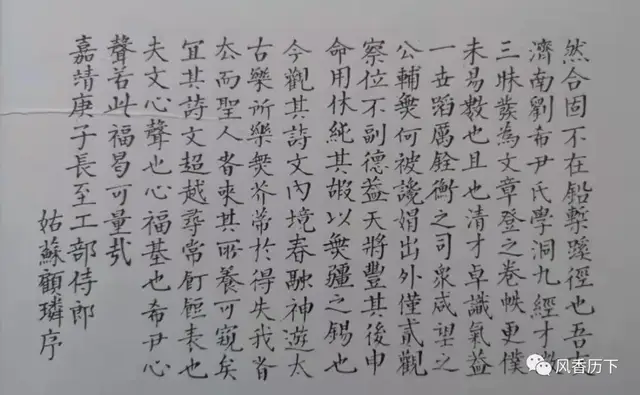 然合固不在鉛槧蹊徑也吾
濟南劉希尹氏學洞九經才
三昧發為文章登之卷帙更僕
未易數也且也清才卓識氣益
一世蹈厲銓衡之司衆咸望之
公輔無何被讒娟出外僅貳觀
察位不副德益天將豐其後申
命用休純其嘏以無疆之錫也
今觀其詩文內境春融神遊太
古樂所樂無芥蒂於得失我者
去而聖人者來其所養可窺矣
宜其詩文超越尋常飣餖表也
夫文心聲也心福基也希尹心
聲若此福曷可量哉
嘉靖庚子長至工部侍郎
姑蘇顧璘序
风香历下